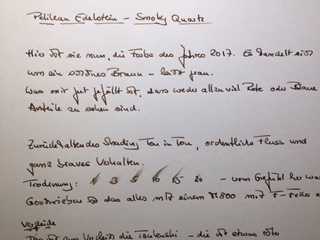 Pelikan Edelstein – Smoky Quartz
Hier ist sie nun, die Farbe des Jahres 2017. Es handelt sich
um ein schönes Braun – leicht grau.
Was mir gut gefällt ist, dass weder allen viel Rote oder Blaue
Anteile zu sehen sind.
Zurückhaltendes Shading Ton in Ton, ordentlicher Fluss und
ganz braves Verhalten.
Trocknung: 1 3 5 10 15 20 – vom Gefühl her
Geschrieben ist das alles mit einem M800 mit F-
Vergleiche
Das ist zum Vergleich die – die ist etwas